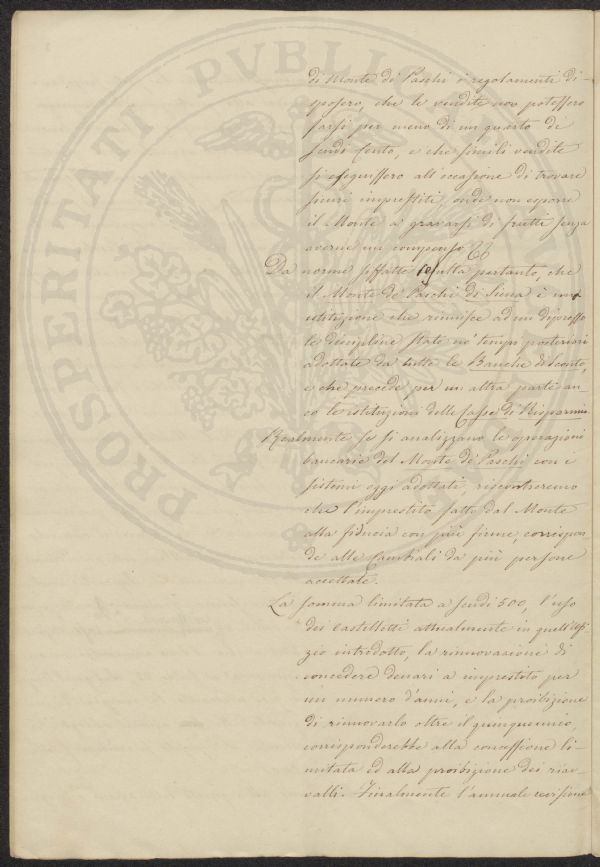 di Monte de' Paschi i regolamenti di-
sposero, che le vendite non potessero
farsi per meno di un quarto di
scudi Cento, e che simili vendite
si eseguissero all'occasione di trovare
sicuri imprestiti, onde non esporre
il Monte a gravarsi di frutti senza
averne un compenso.
Da norme siffatte resulta pertanto, che
il Monte de' Paschi di Siena è una
istituzione che riunisce ad un dipresso
le discipline state ne' tempi posteriori
adottate da tutte le Banche di Sconto,
e che precede per un altra parte an-
co le istituzioni delle Casse di Risparmio.
Realmente se si analizzano le operazioni
bancarie del Monte de' Paschi con i
sistemi oggi adottati, riscontreremo
che l'imprestito fatto dal Monte
alla fiducia con più firme, corrispon-
de alle Cambiali da più persone
accettate.
La somma limitata a scudi 500, l'uso
dei Castelletti attualmente in quell'Uffi-
zio introdotto, la rinnovazione di
concedere denari a imprestito per
un numero d'anni, e la proibizione
di rinnovarlo oltre il quinquennio,
corrisponderebbe alla concessione li-
mitata ed alla proibizione dei rica-
valli. Finalmente l'annuale revisione
PROSPERITATI PVBLICAE